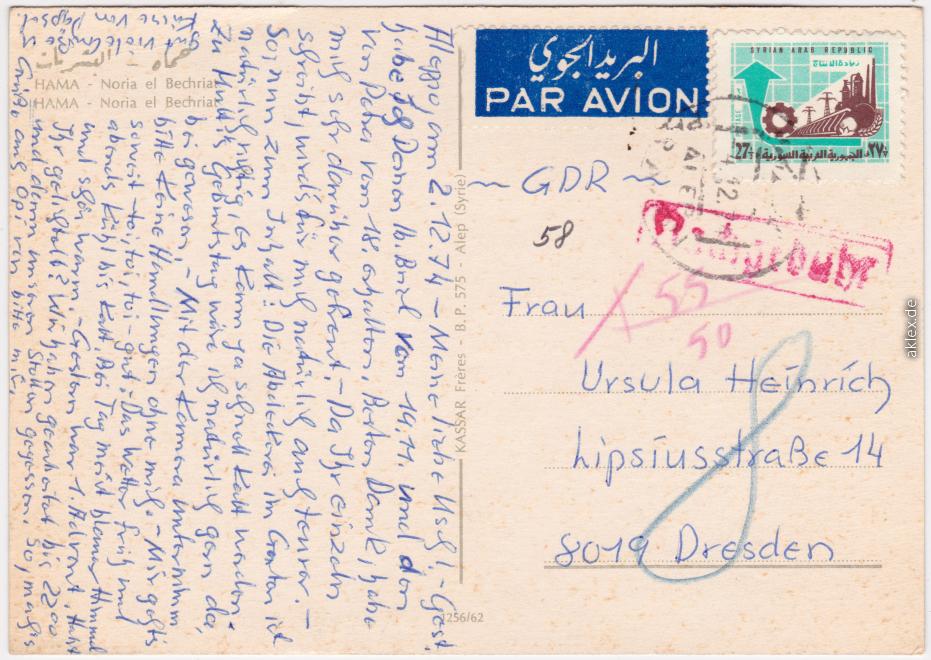 حماه - النوريات
HAMA - Noria el Bechriat
HAMA - Noria el Bechriat
Aleppo am 2.12.74 - Meine liebe Uschi! - Gest.
habe ich Deinen lb. Brief vom 14.11. und den
von Petra vom 18. erhalten. Besten Dank, habe
mich sehr darüber gefreut. - Da Ihr einzeln
schreibt, wird's für mich natürlich auch teurer. -
So, nun zum Inhalt! Die Abdeckerei im Garten ist
natürlich richtig, es kann ja schnell kalt werden.
Zu Geburtstag wäre ich natürlich gern da
bei gewesen. - Mit der Kamera unternimm
bitte keine Handlungen ohne mich. - Mir geht's
soweit toi, toi, toi - gut. - Das Wetter früh und
abends kühl bis kalt. Bei Tag meist blauer Himmel
und schön warm. - Gestern war 1. Advent. Habt
Ihr gefeiert? Wir haben gearbeitet bis 22.00
und dann unseren Stollen gegessen. So, mach's
gut viele
Küsse von
Grüße auch Opi von bitte mir.
KASSAR Frères - B.P. 575 - Alep (Syrie)
1256/62
البريد الجوي
PAR AVION
SYRIAN ARAB REPUBLIC
27½
الجمهورية العربية السورية
٢٧½
~ GDR ~
58
Nachgebühr
55
50
Frau
Ursula Heinrich
Lipsiusstraße 14
8019 Dresden
8
aklex.de